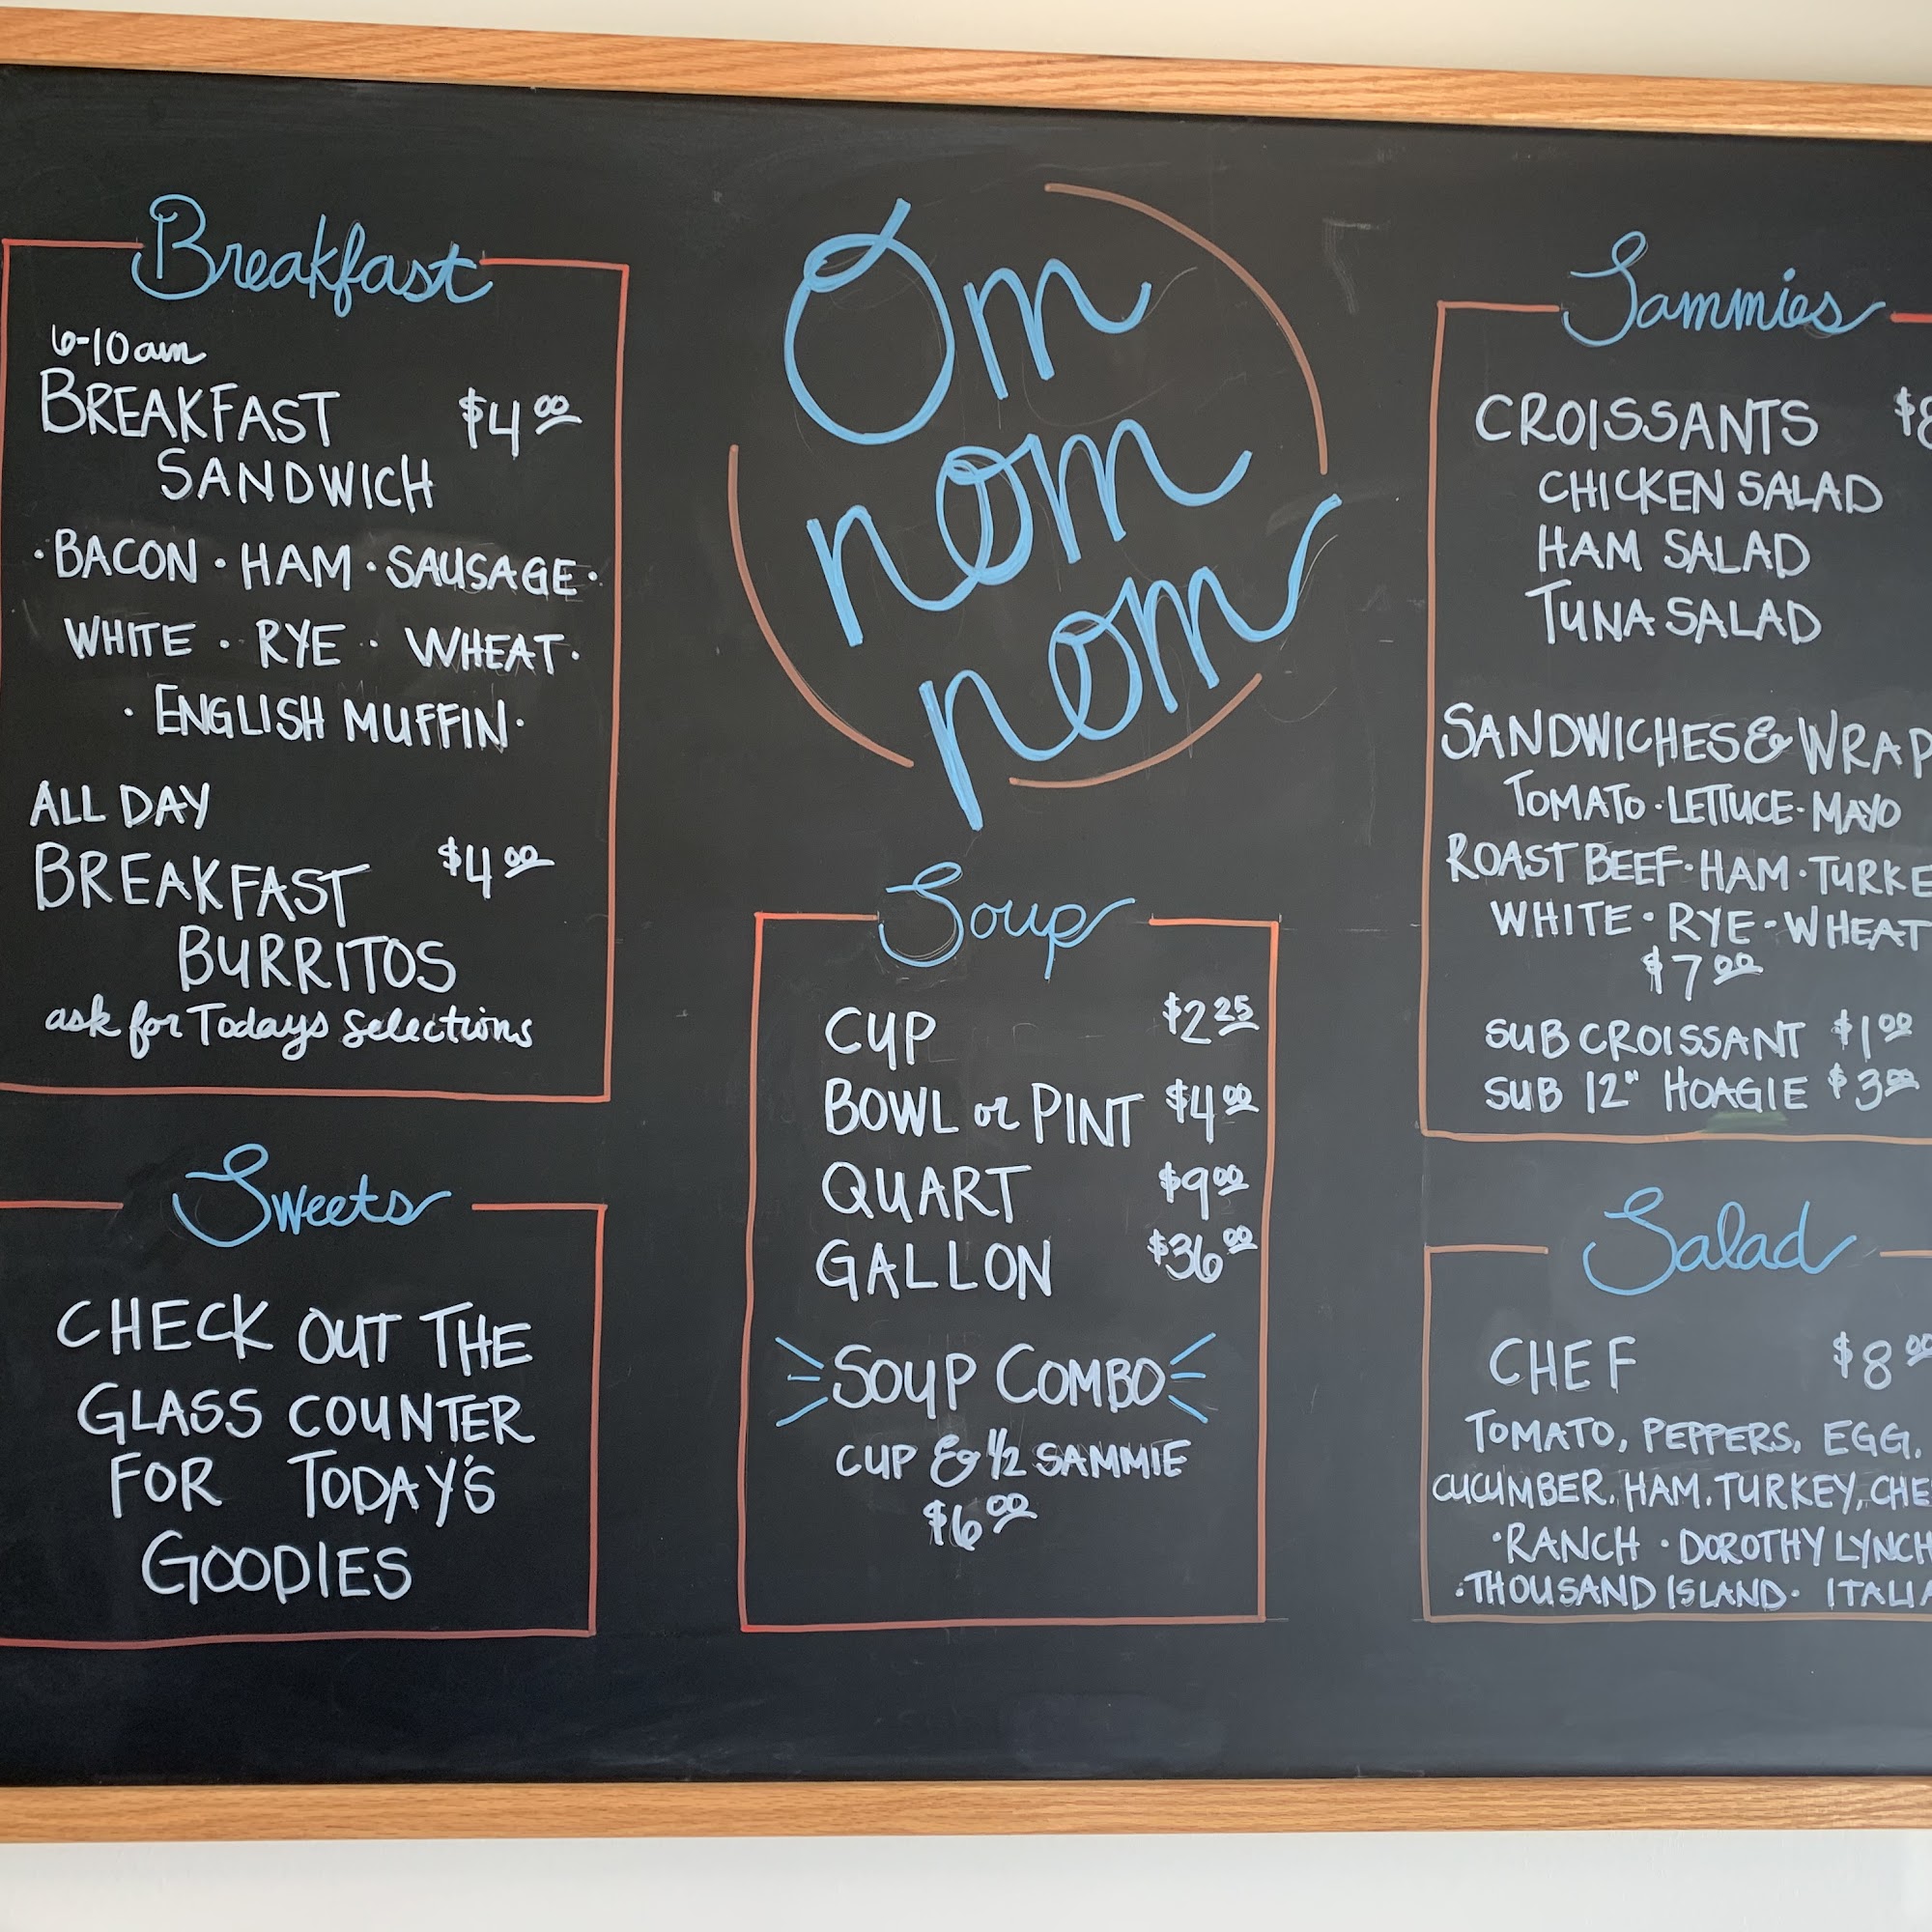 Breakfast
6-10am
BREAKFAST $4.00
SANDWICH
·BACON·HAM·SAUSAGE·
WHITE · RYE · WHEAT·
·ENGLISH MUFFIN·
ALL DAY
BREAKFAST $4.00
BURRITOS
ask for Todays Selections
Sweets
CHECK OUT THE
GLASS COUNTER
FOR TODAY'S
GOODIES
Om
nom
nom
Soup
CUP $2.25
BOWL or PINT $4.00
QUART $9.00
GALLON $36.00
SOUP COMBO
CUP & 1/2 SAMMIE
$6.00
Sammies
CROISSANTS $8
CHICKEN SALAD
HAM SALAD
TUNA SALAD
SANDWICHES & WRAP
TOMATO·LETTUCE·MAYO
ROAST BEEF·HAM·TURKE
WHITE·RYE·WHEAT
$7.00
SUB CROISSANT $1.00
SUB 12" HOAGIE $3.00
Salad
CHEF $8.00
TOMATO, PEPPERS, EGG,
CUCUMBER, HAM, TURKEY, CHE
·RANCH ·DOROTHY LYNCH
·THOUSAND ISLAND· ITALIA